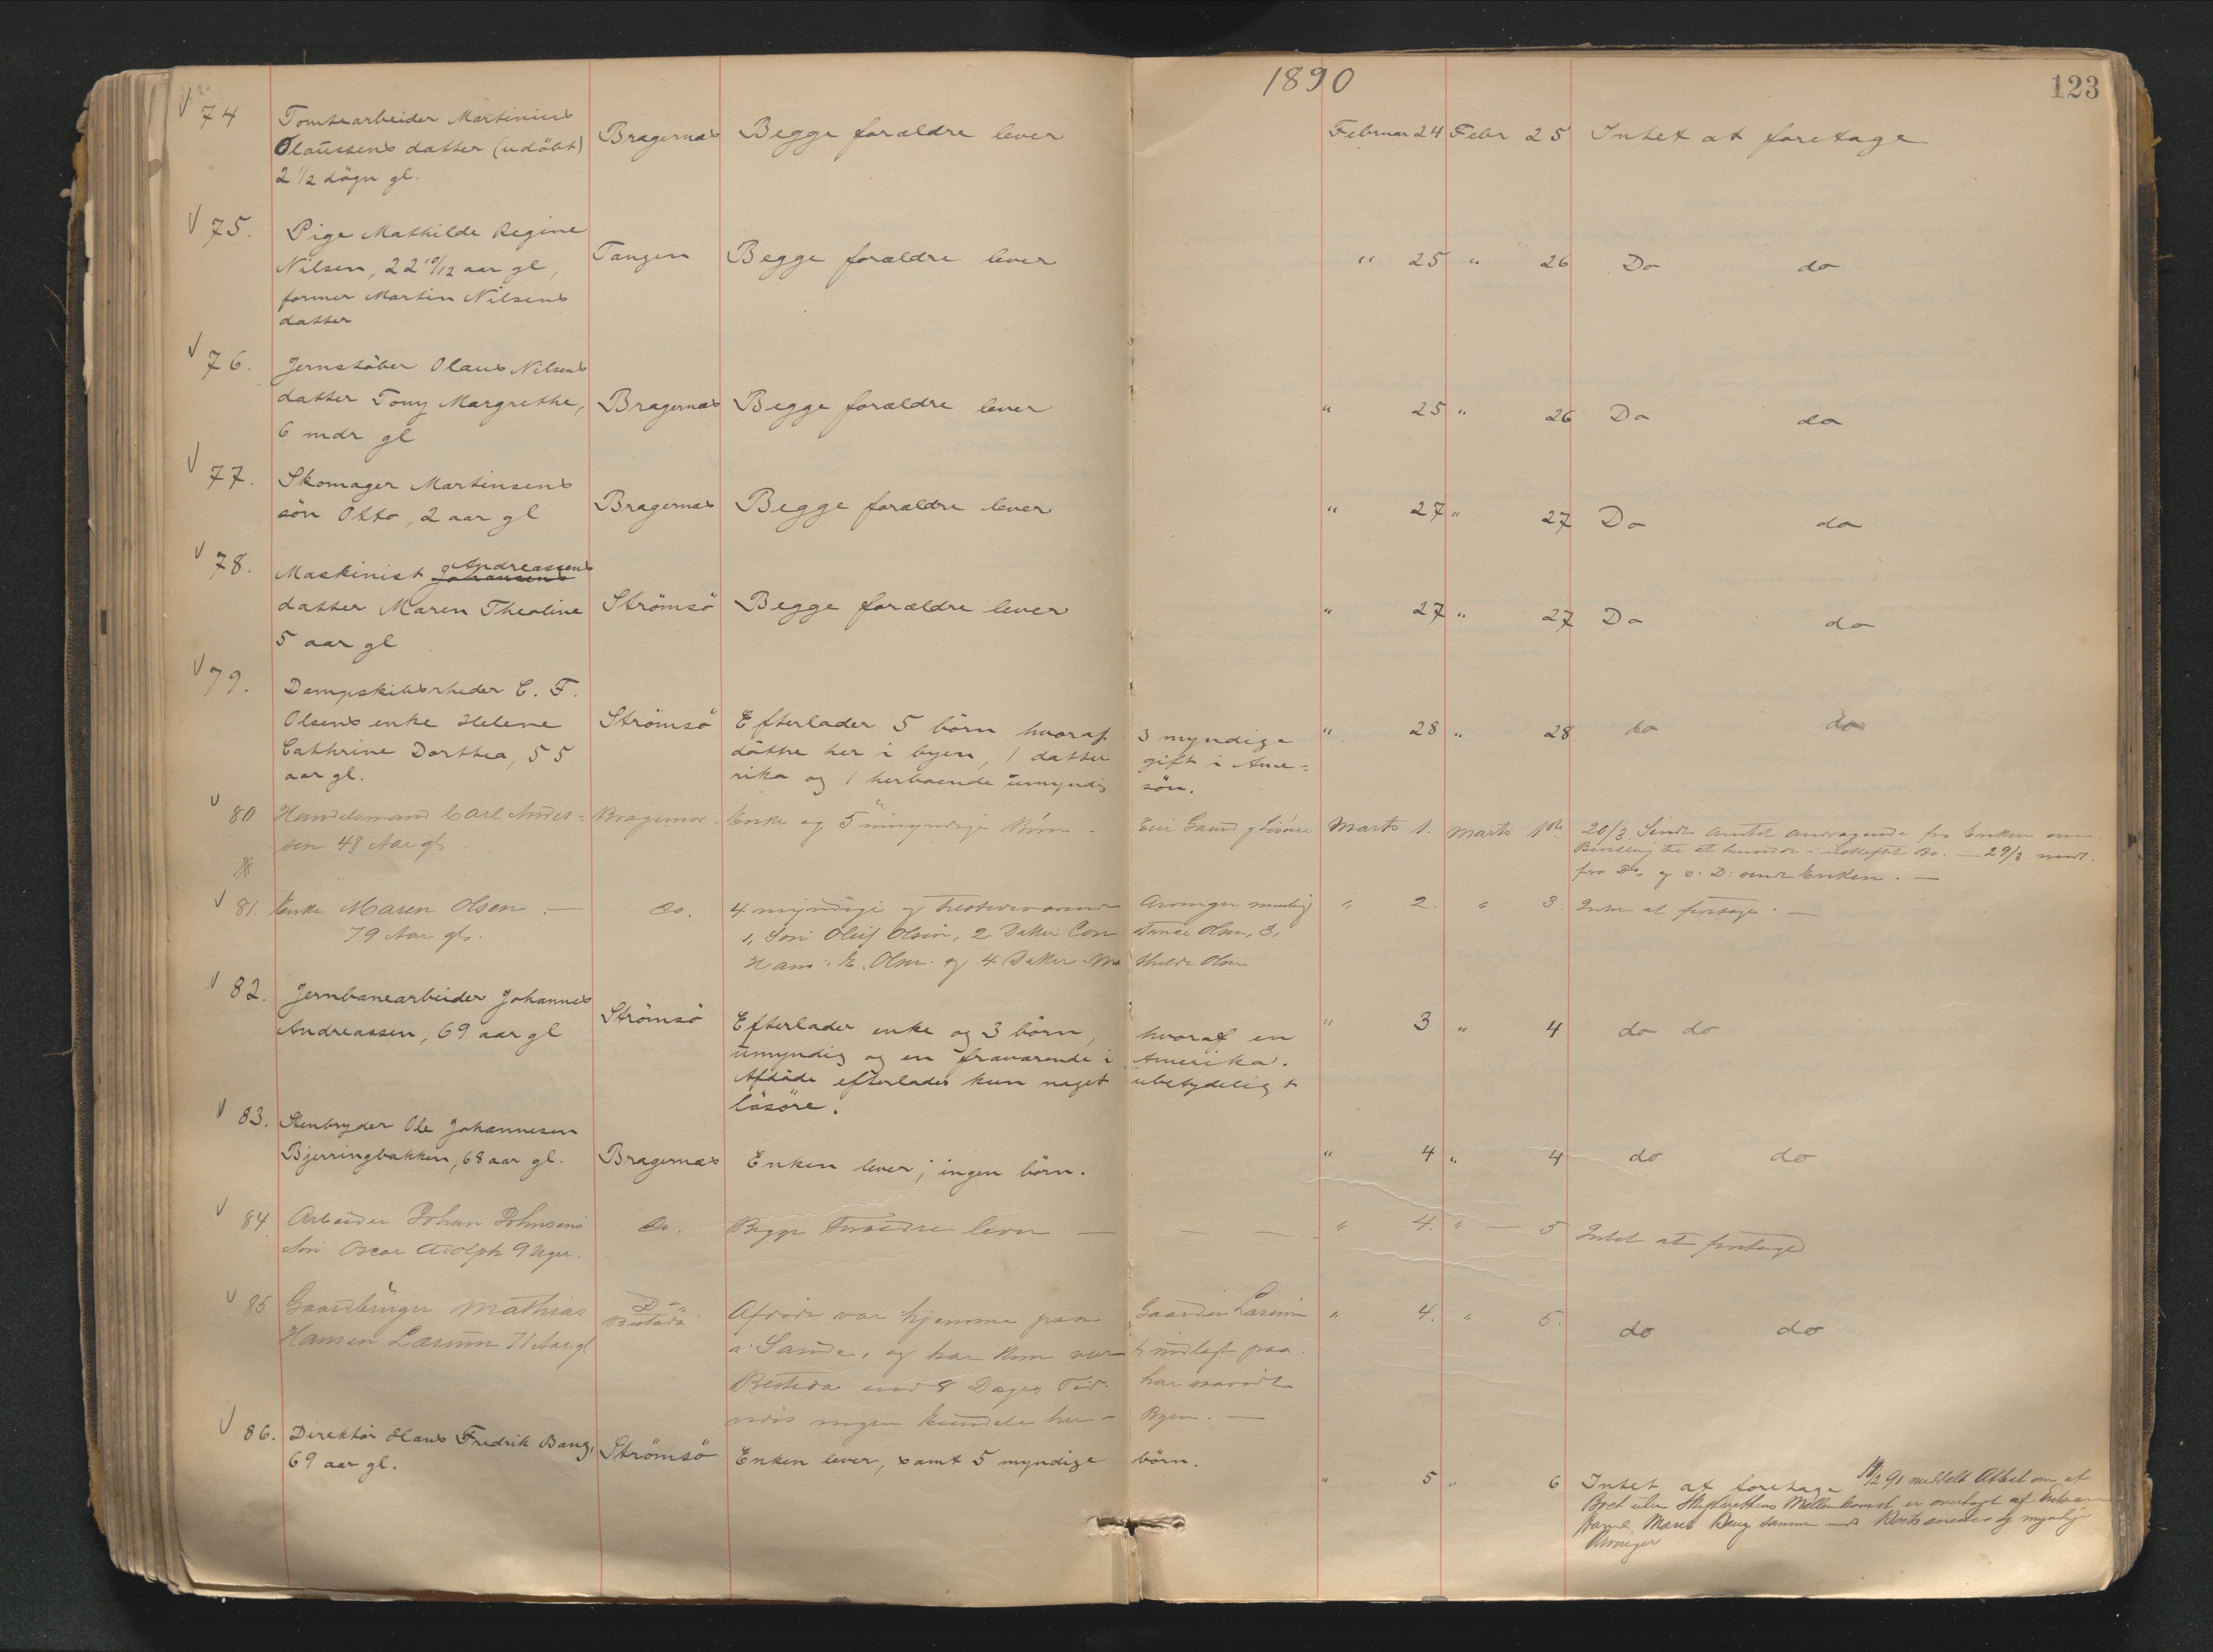 1890
123
74 Tomtearbeider Martinius Bragernæs Begge forældre lever Februar 24 Febr 25 Intet at foretage
Olaussens datter (udöbt)
2 1/2 dögn gl.
75. Pige Mathilde Regine Tangen Begge forældre lever " 25 " 26 Do do
Nilsen, 22 10/12 aar gl,
former Martin Nilsens
datter
76. Jernstöber Olaus Nilsens Bragernæs Begge forældre lever " 25 " 26 Do do
datter Tony Margrethe,
6 mdr gl
77. Skomager Martinsens Bragernæs Begge forældre lever " 27 " 27 Do do
sön Otto, 2 aar gl
78. Maskinist Johansens Andreassens Strömsö Begge forældre lever " 27 " 27 Do do
datter Maren Theoline
5 aar gl
79. Dampskibsrheder C. F. Strömsö Efterlader 5 börn hvoraf 3 myndige " 28 " 28. do do
Olsens enke Helene döttre her i byen, 1 datter gift i Ame=
Cathrine Dorthea, 55 rika og 1 herboende umyndig sön.
aar gl.
80 Handelsmand Carl Ander= Bragernæs. Enke og 5 umyndige Börn - Marts 1. Marts 1ste 20/3. Sendt Amtet Andragende fra Enken om
sen 48 Aar gl. Bevilling til at hensidde i uskiftet Bo. — 29/3 modt.
fra Do. og s. D. sendt Enken. —
81. Enke Maren Olsen. — do. 4 myndige og tilstedeværende Arvinger nemlig " 2. " 3. Intet at foretage. —
79 Aar gl. 1, Sön Oluf Olsen, 2 Datter Constance Olsen, 3,
Hans E. Olsen og 4 Datter Mathilde Olsen
82. Jernbanearbeider Johannes Strömsö Efterlader enke og 3 börn, hvoraf en " 3 " 4 do do
Andreassen, 69 aar gl umyndig og en fraværende i Amerika.
Afdöde efterlader kun noget ubetydeligt
lösöre.
83. Stenbryder Ole Johannesen Bragernæs Enken lever; ingen börn. " 4 " 4 do do
Bjerringbakken, 68 aar gl.
84. Arbeider Johan Johnsens do. Begge Forældre lever — — — " 4. " — 5 Intet at foretage
Sön Oscar Adolph 9 Uger.
85 Gaardbruger Mathias Do Afdöde var hjemme paa Gaarden Læsum " 4. " 5. do do
Hansen Læsum 71 Aar gl Besteda i Sande, og har kun været indlagt paa
Besteda end 8 Dages Tid. har
Byen. —
86. Direktör Hans Fredrik Bang, Strömsö Enken lever, samt 5 myndige börn. " 5 " 6 Intet at foretage 19/2 91 meddelt Attest om at
69 aar gl. Boet uden Skifterettens Mellemkomst er overtaget af Enken
Bang sammen med myndige
Arvinger